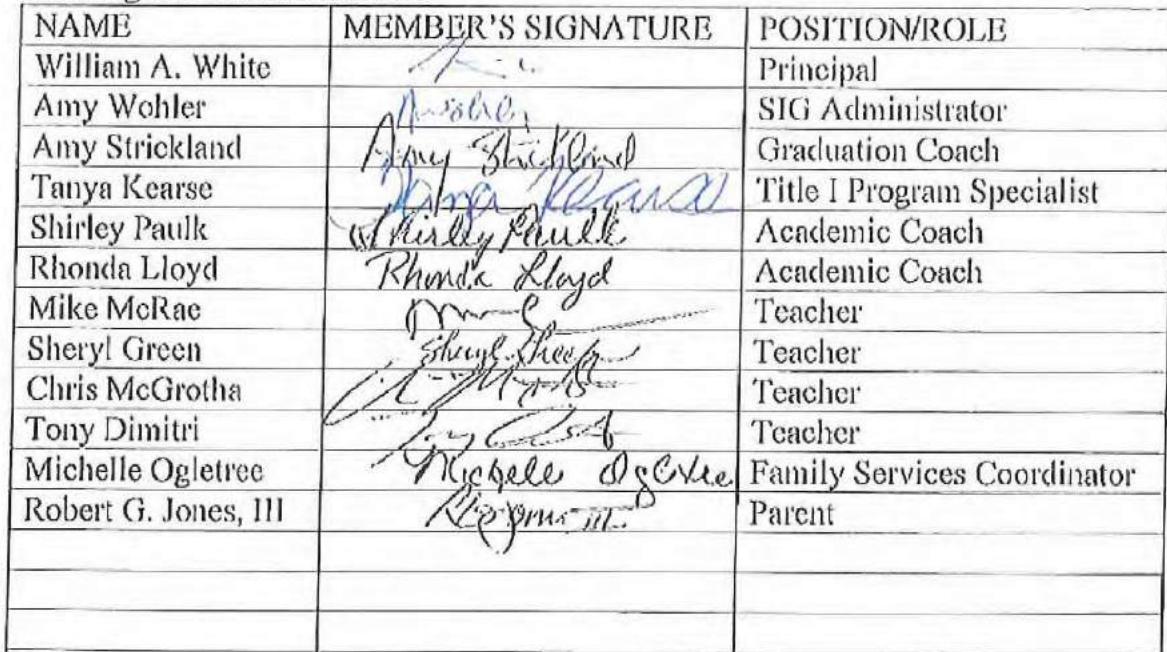 NAME MEMBER'S SIGNATURE POSITION/ROLE
William A. White Principal
Amy Wohler Awohler SIG Administrator
Amy Strickland Amy Strickland Graduation Coach
Tanya Kearse Tanya Kearse Title I Program Specialist
Shirley Paulk Shirley Paulk Academic Coach
Rhonda Lloyd Rhonda Lloyd Academic Coach
Mike McRae Teacher
Sheryl Green Sheryl Green Teacher
Chris McGrotha Teacher
Tony Dimitri Teacher
Michelle Ogletree Michelle Ogletree Family Services Coordinator
Robert G. Jones, III Parent